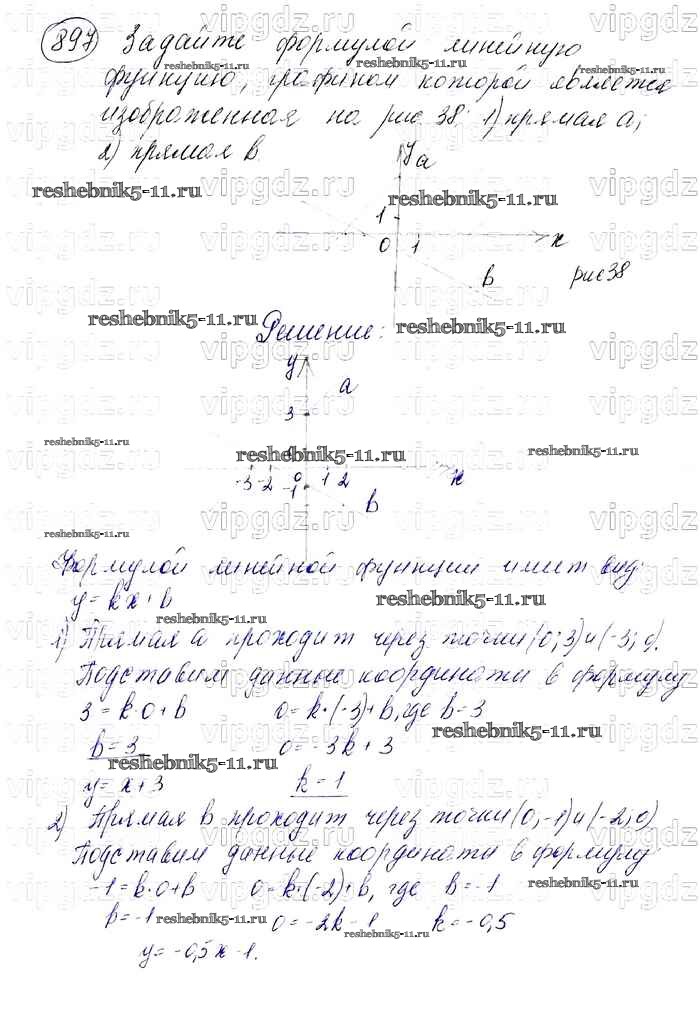 897 Задайте формулой линейную
функцию, графиком которой является
изображенная на рис 38: 1) прямая a;
2) прямая b.
y a
1
0 1 x
b рис 38
Решение:
y
a
3
-3 -2 0 1 2 x
-1
b
Формулой линейной функции имеет вид:
y = kx + b
1) Прямая a проходит через точки (0; 3) и (-3; 0).
Подставим данные координаты в формулу
3 = k·0 + b 0 = k·(-3) + b, где b = 3
b = 3 0 = -3k + 3
y = x + 3 k = 1
2) Прямая b проходит через точки (0, -1) и (-2; 0)
Подставим данные координаты в формулу
-1 = b·0 + b 0 = k·(-2) + b, где b = -1
b = -1 0 = -2k - 1 k = -0,5
y = -0,5x - 1.
reshebnik5-11.ru
vipgdz.ru